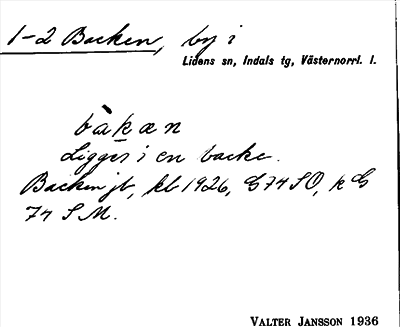 1-2 Backen, by i
Lidens sn, Indals tg, Västernorrl. l.
bàkæn
Ligger i en backe.
Backen jb, kb 1926, G 74 SO, k G
74 S M.
VALTER JANSSON 1936